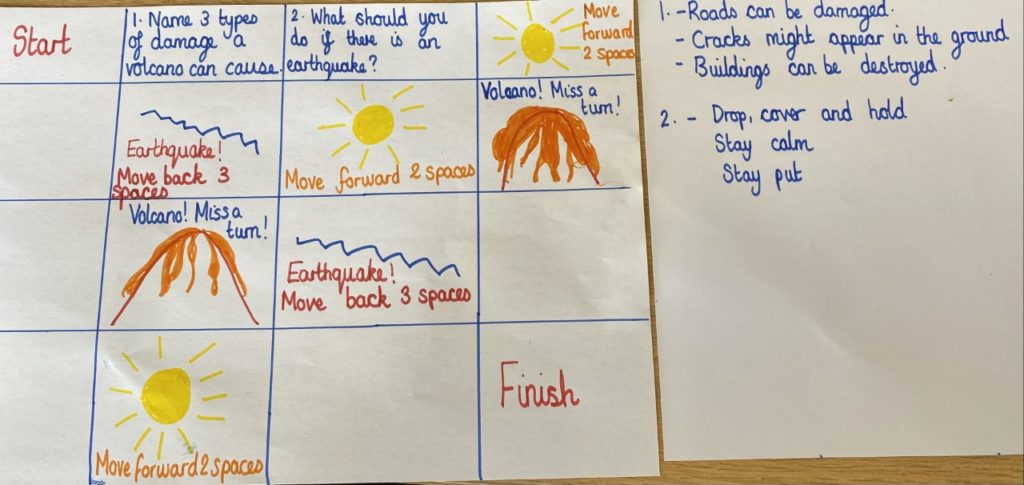 Start
1. Name 3 types
of damage a
volcano can cause.
2. What should you
do if there is an
earthquake?
Move
forward
2 spaces
Earthquake!
Move back 3
spaces
Move forward 2 spaces
Volcano! Miss a
turn!
Volcano! Miss a
turn!
Earthquake!
Move back 3 spaces
Move forward 2 spaces
Finish
1. - Roads can be damaged.
- Cracks might appear in the ground
- Buildings can be destroyed.
2. - Drop, cover and hold
Stay calm
Stay put